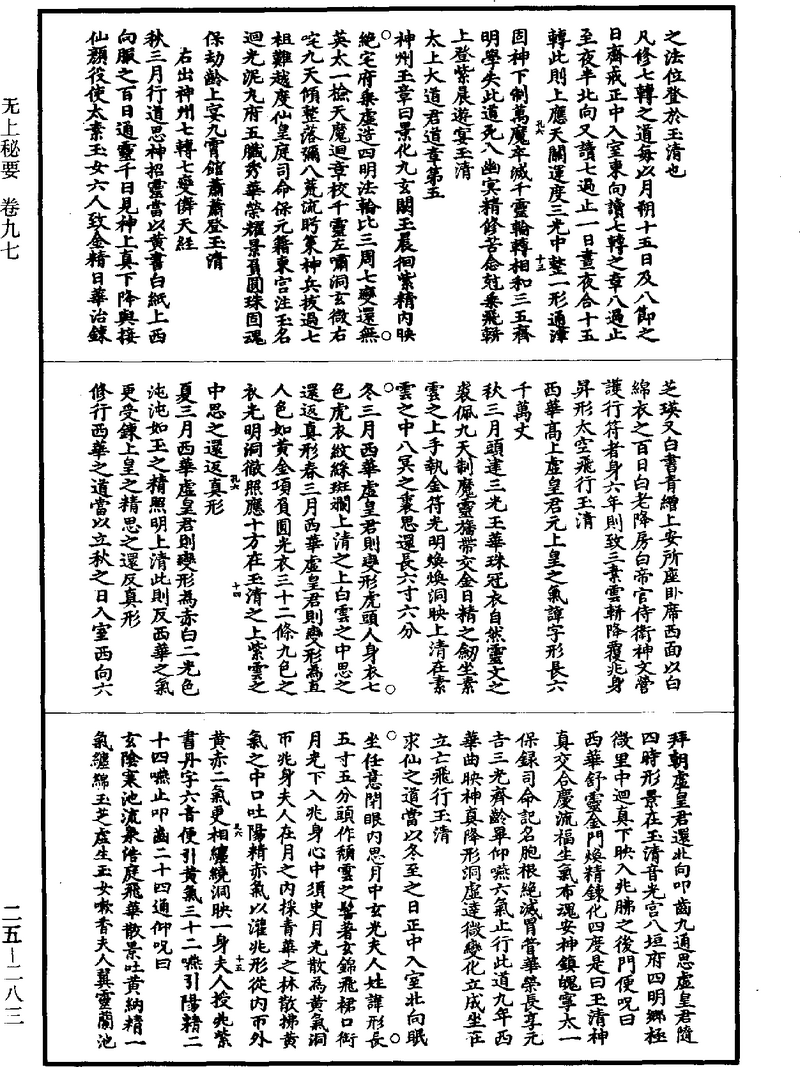 无上秘要　卷九七
二五—二八三
之法位登於玉清也
凡修七轉之道每以月朔十五日及八節之
日齋戒正中入室東向讀七轉之章八過止
至夜半北向又讀七過止一日晝夜合十五
轉此則上應天關運度三光中整一形通津
固神下制萬魔卒滅千靈輪轉相和三五齊
明學失此道死入幽冥精修苦念剋乘飛軿
上登紫晨遊宴玉清
太上大道君道章第五
神州玉章曰景化九玄關玉晨徊紫精內映
絶宅府乘虛造四明法輪比三周七變還無
英太一檢天魔迴章校千靈左嘯洞玄微右
咤九天傾整落彌八荒流眄策神兵拔過七
祖難越度仙皇庭司命保元籍東宮注玉名
迴光泥丸府五臟秀華榮耀景負圓珠固魂
保劫齡上宴九霄館蕭蕭登玉清
右出神州七轉七變儛天經
秋三月行道思神招靈當以黃書白紙上西
向服之百日通靈千日見神上真下降與接
仙顏役使太素玉女六人致金精日華治鍊
芝瑛又白書青繒上安所座卧席西面以白
綿衣之百日白老降房白帝官侍衛神文營
護行符者身六年則致三素雲軿降覆兆身
昇形太空飛行玉清
西華高上虛皇君元上皇之氣諱字形長六
千萬丈
秋三月頭建三光玉華珠冠衣自然靈文之
裘佩九天制魔靈旛帶交金日精之劒坐素
雲之上手執金符光明煥煥洞映上清在素
雲之中八冥之裏思還長六寸六分
冬三月西華虛皇君則變形虎頭人身衣七
色虎衣紋綵斑斕上清之上白雲之中思之
還返真形春三月西華虛皇君則變形為直
人色如黃金項負圓光衣三十二條九色之
衣光明洞徹照應十方在玉清之上紫雲之
中思之還返真形
夏三月西華虛皇君則變形為赤白二光色
沌沌如玉之精照明上清此則反西華之氣
更受鍊上皇之精思之還反真形
修行西華之道當以立秋之日入室西向六
拜朝虛皇君還北向叩齒九通思虛皇君隨
四時形景在玉清音光宮八垣府四明鄉極
徵里中迴真下映入兆胇之後門便呪曰
西華舒靈金門煥精鍊化四度是曰玉清神
真交合慶流福生氣布魂安神鎮魄寧太一
保錄司命記名胞根絶滅胃管華榮長享元
吉三光齊齡畢仰嚥六氣止行此道九年西
華曲映神真降形洞虛達微變化立成坐在
立亡飛行玉清
求仙之道當以冬至之日正中入室北向眠
坐任意閉眼內思月中玄光夫人姓諱形長
五寸五分頭作頹雲之髻著玄錦飛裙口銜
月光下入兆身心中須臾月光散為黃氣洞
帀兆身夫人在月之內採青華之林散拂黃
氣之中口吐陽精赤氣以灌兆形從內帀外
黃赤二氣更相纏繞洞映一身夫人授兆紫
書丹字六音便引黃氣三十二嚥引陽精二
十四嚥止叩齒二十四通仰呪曰
玄陰寒池流泉洪庭飛華散景吐黃納精一
氣纏綿玉芝虛生玉女嗽香夫人翼靈蘭池